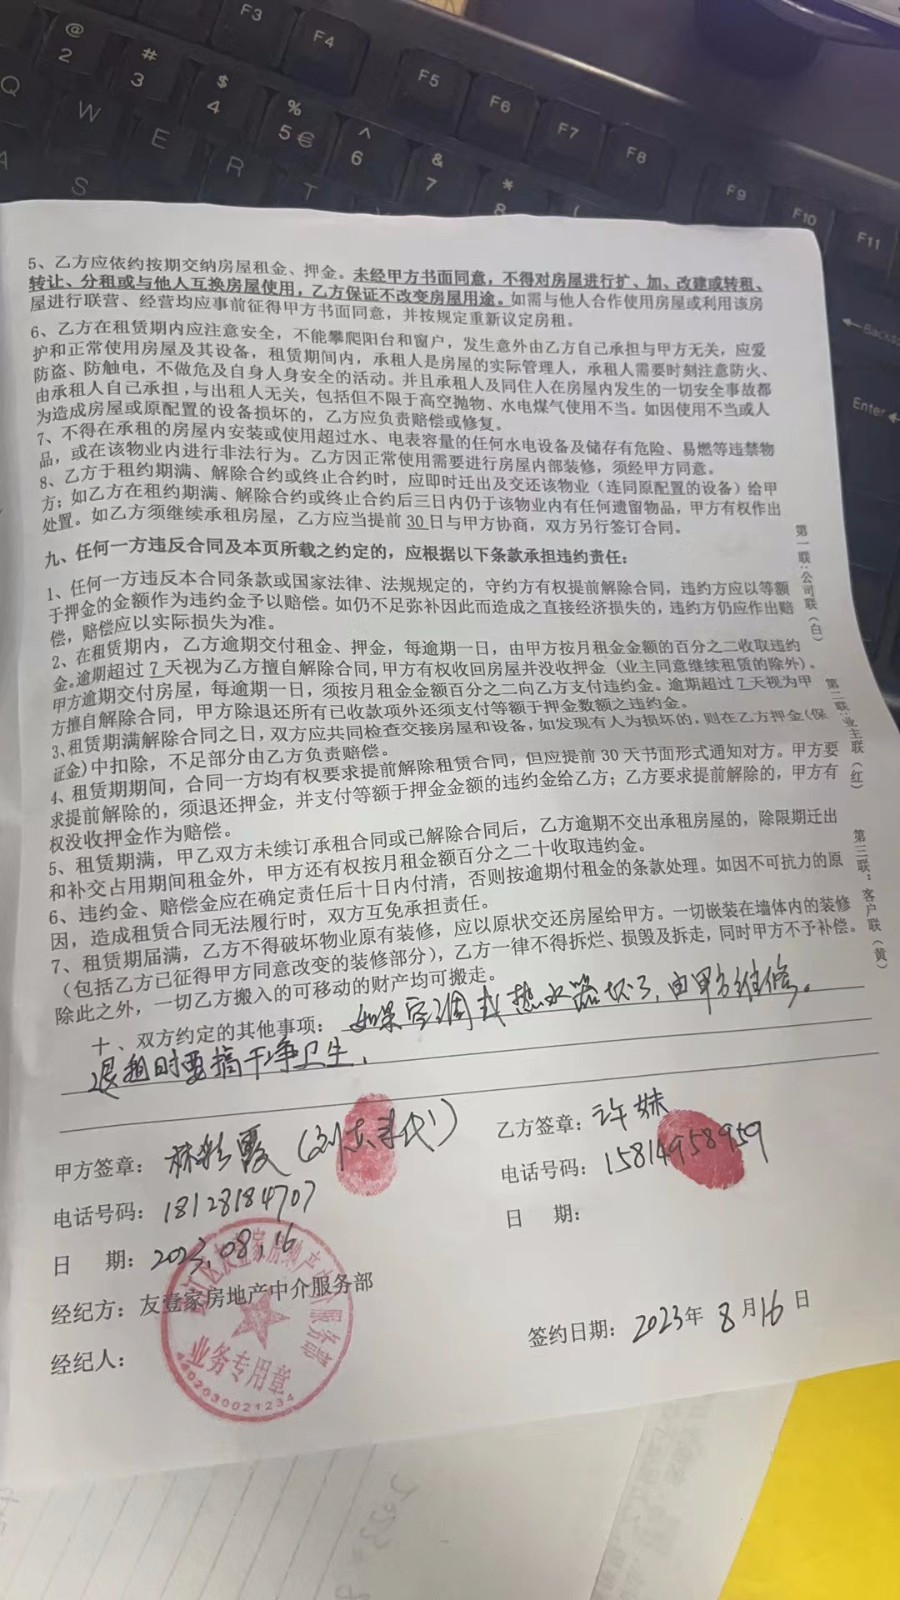 F3
F4
F5
F6
F7
F8
F9
F10
F11
@
2
#
3
$
4
%
5 €
^
6
&
7
*
8
(
Q
W
E
R
T
A
S
Backsp
Enter
5、乙方应依约按期交纳房屋租金、押金。未经甲方书面同意，不得对房屋进行扩、加、改建或转租、
转让、分租或与他人互换房屋使用，乙方保证不改变房屋用途。如需与他人合作使用房屋或利用该房
屋进行联营、经营均应事前征得甲方书面同意，并按规定重新议定房租。
6、乙方在租赁期内应注意安全，不能攀爬阳台和窗户，发生意外由乙方自己承担与甲方无关，应爱
护和正常使用房屋及其设备，租赁期间内，承租人是房屋的实际管理人，承租人需要时刻注意防火、
防盗、防触电，不做危及自身人身安全的活动。并且承租人及同住人在房屋内发生的一切安全事故都
由承租人自己承担，与出租人无关，包括但不限于高空抛物、水电煤气使用不当。如因使用不当或人
为造成房屋或原配置的设备损坏的，乙方应负责赔偿或修复。
7、不得在承租的房屋内安装或使用超过水、电表容量的任何水电设备及储存有危险、易燃等违禁物
品，或在该物业内进行非法行为。乙方因正常使用需要进行房屋内部装修，须经甲方同意。
8、乙方于租约期满、解除合约或终止合约时，应即时迁出及交还该物业（连同原配置的设备）给甲
方；如乙方在租约期满、解除合约或终止合约后三日内仍于该物业内有任何遗留物品，甲方有权作出
处置。如乙方须继续承租房屋，乙方应当提前30日与甲方协商，双方另行签订合同。
九、任何一方违反合同及本页所载之约定的，应根据以下条款承担违约责任：
1、任何一方违反本合同条款或国家法律、法规规定的，守约方有权提前解除合同，违约方应以等额
于押金的金额作为违约金予以赔偿。如仍不足弥补因此而造成之直接经济损失的，违约方仍应作出赔
偿，赔偿应以实际损失为准。
2、在租赁期内，乙方逾期交付租金、押金，每逾期一日，由甲方按月租金金额的百分之二收取违约
金。逾期超过7天视为乙方擅自解除合同，甲方有权收回房屋并没收押金（业主同意继续租赁的除外）。
甲方逾期交付房屋，每逾期一日，须按月租金金额百分之二向乙方支付违约金。逾期超过7天视为甲
方擅自解除合同，甲方除退还所有已收款项外还须支付等额于押金数额之违约金。
3、租赁期满解除合同之日，双方应共同检查交接房屋和设备，如发现有人为损坏的，则在乙方押金(保
证金)中扣除，不足部分由乙方负责赔偿。
4、租赁期期间，合同一方均有权要求提前解除租赁合同，但应提前30天书面形式通知对方。甲方要
求提前解除的，须退还押金，并支付等额于押金金额的违约金给乙方；乙方要求提前解除的，甲方有
权没收押金作为赔偿。
5、租赁期满，甲乙双方未续订承租合同或已解除合同后，乙方逾期不交出承租房屋的，除限期迁出
和补交占用期间租金外，甲方还有权按月租金额百分之二十收取违约金。
6、违约金、赔偿金应在确定责任后十日内付清，否则按逾期付租金的条款处理。如因不可抗力的原
因，造成租赁合同无法履行时，双方互免承担责任。
7、租赁期届满，乙方不得破坏物业原有装修，应以原状交还房屋给甲方。一切嵌装在墙体内的装修
（包括乙方已征得甲方同意改变的装修部分），乙方一律不得拆烂、损毁及拆走，同时甲方不予补偿。
除此之外，一切乙方搬入的可移动的财产均可搬走。
十、双方约定的其他事项：如果空调或热水器坏了，由甲方维修。
退租时要搞干净卫生，
第一联:公司联（白）
第二联:业主联（红）
第三联：客户联（黄）
甲方签章：林彩霞（刘代）
乙方签章：许妹
电话号码：18128184707
电话号码：15814958959
日 期：2023.08.16
日 期：
经纪方：友壹家房地产中介服务部
经纪人：
签约日期：2023年8月16日
江区友壹家房地产中介服务部
业务专用章
4402030021234